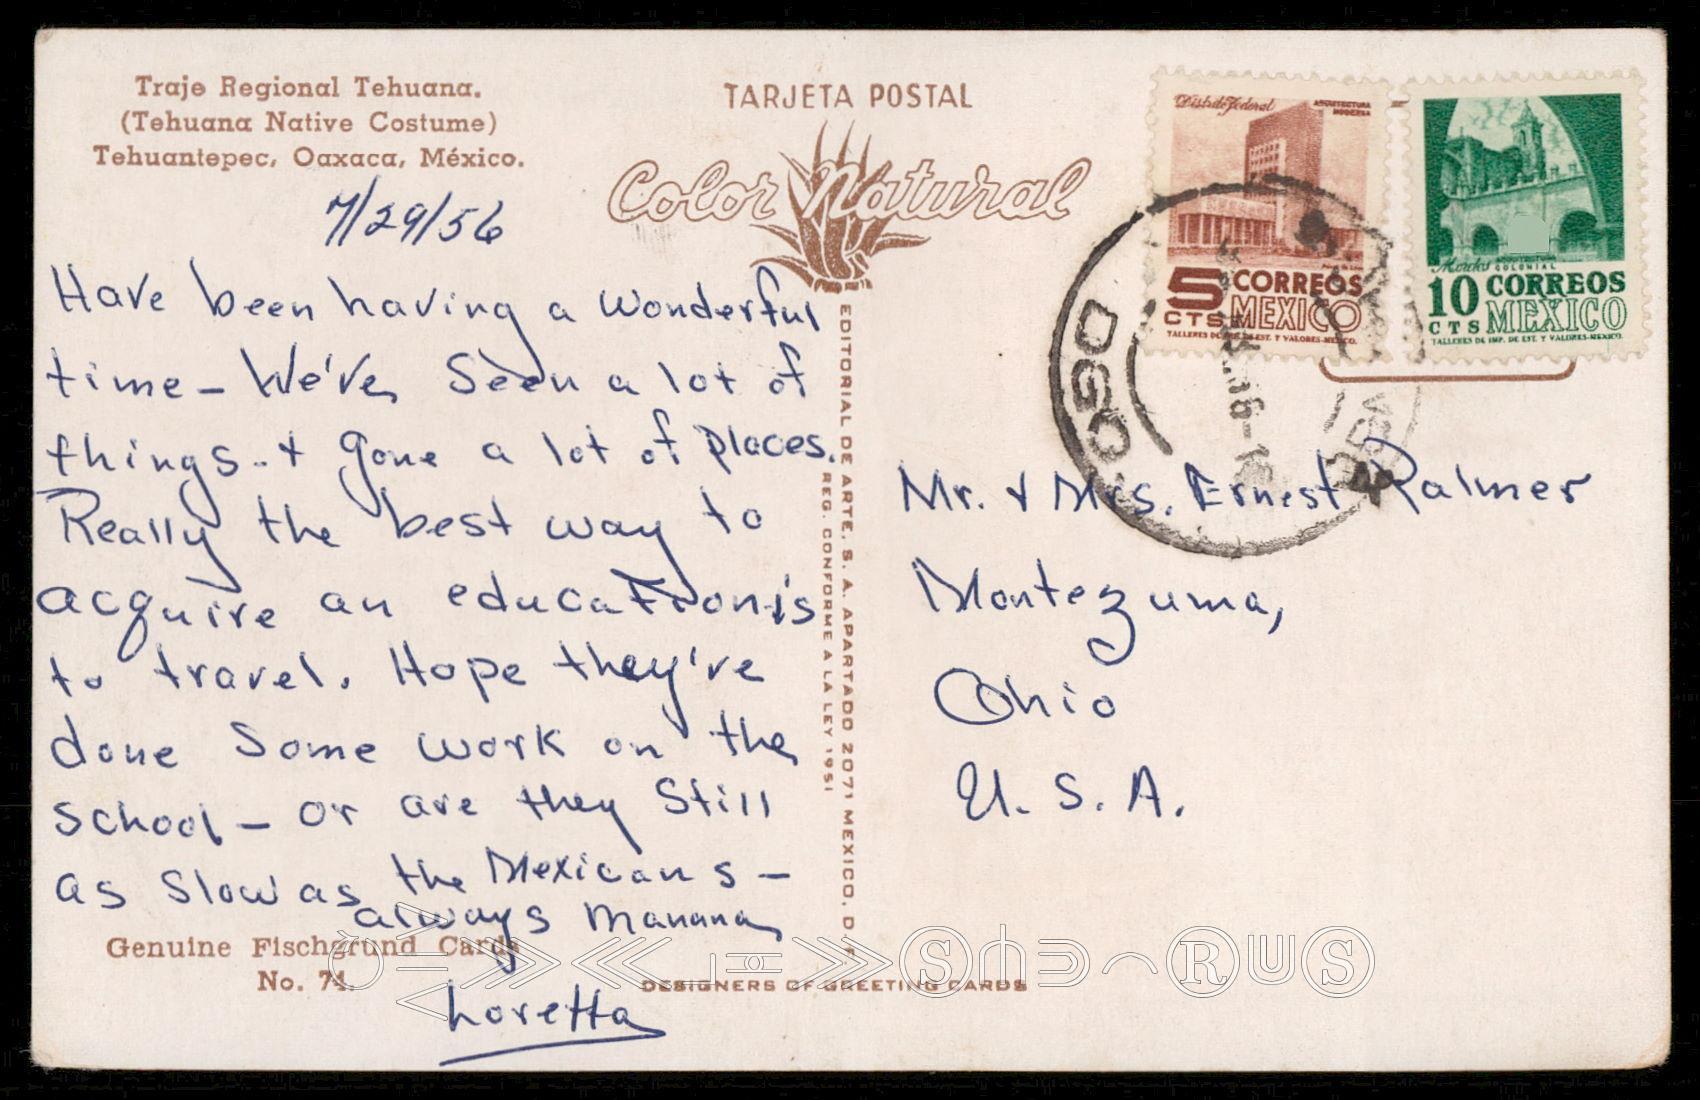 Traje Regional Tehuana.
(Tehuana Native Costume)
Tehuantepec, Oaxaca, México.
7/29/56
Have been having a wonderful
time - We've seen a lot of
things - + gone a lot of places.
Really the best way to
acquire an education is
to travel. Hope they've
done some work on the
school - or are they still
as slow as the Mexicans -
always manana,
Loretta
Genuine Fischgrund Cards
No. 74.
TARJETA POSTAL
Color Natural
EDITORIAL DE ARTE, S. A. APARTADO 2071 MEXICO, D. F.
REG. CONFORME A LA LEY 1951
DESIGNERS OF GREETING CARDS
Distrito Federal
ARQUITECTURA
MODERNA
5 CORREOS
CTS MEXICO
TALLERES DE IMP. DE EST. Y VALORES-MEXICO.
Morelos ARQUITECTURA
COLONIAL
10 CORREOS
CTS MEXICO
TALLERES DE IMP. DE EST. Y VALORES-MEXICO.
DGO.
Mr. + Mrs. Ernest Palmer
Montezuma,
Ohio
U. S. A.